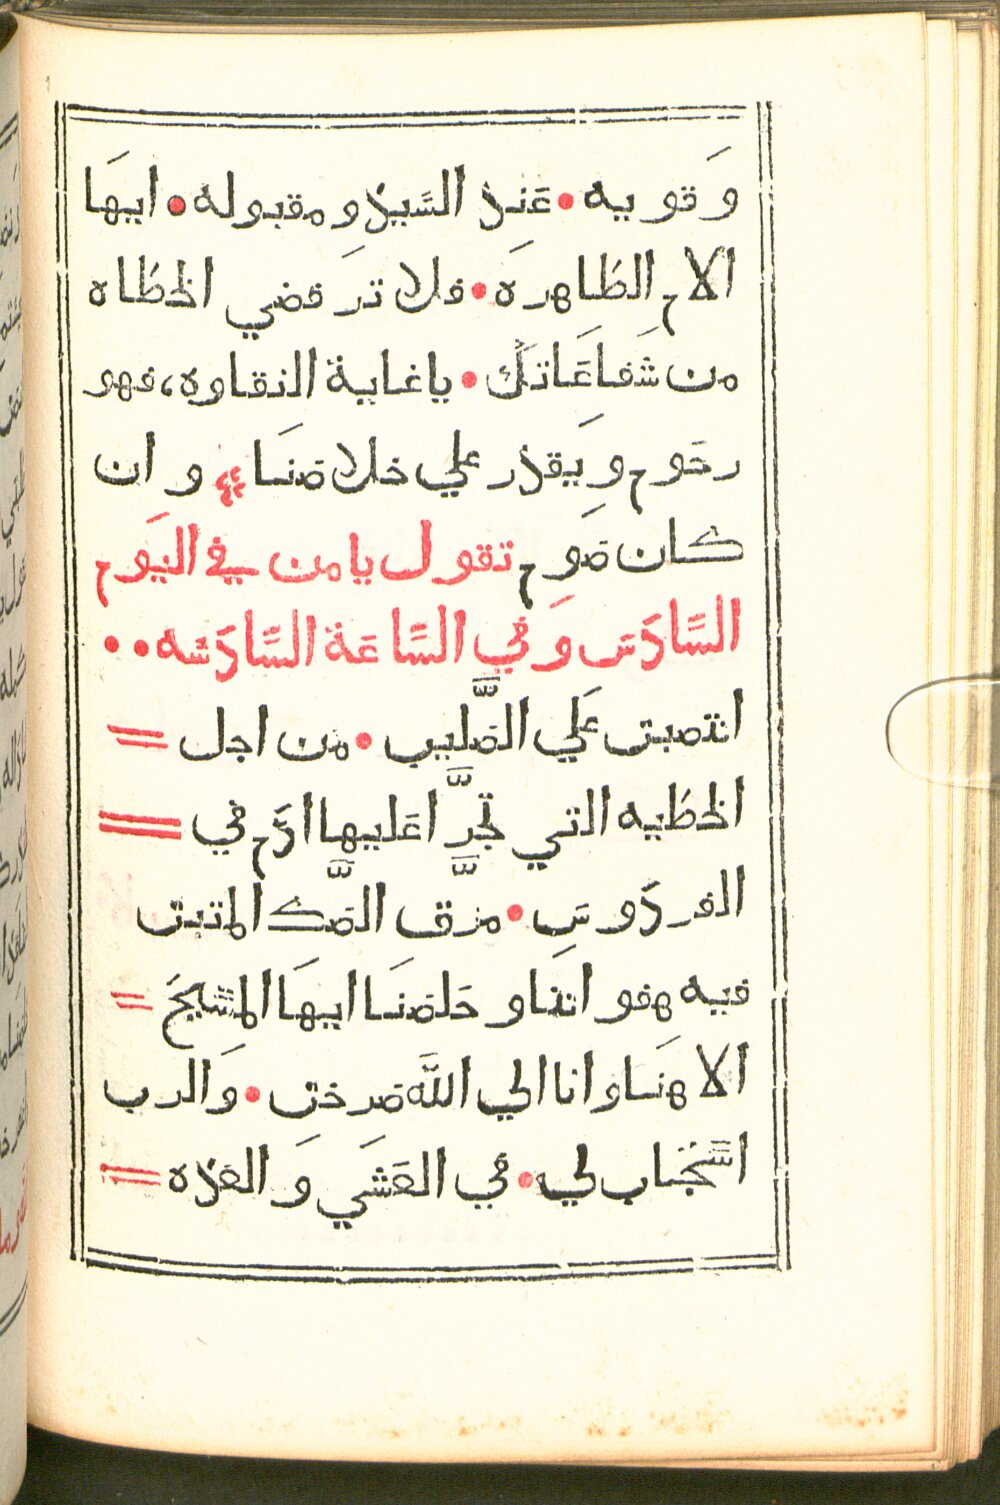 وَقويه • عَند السَّيد ومقبوله • ايهَا
الام الطَاهره • فلا تَرفضي الخطَاه
من شَفاعَاتكَ • ياغاية النقاوه، فهو
رحَوم ويَقدر علي خلاصَنَا وان
كان صَوم تقول يامن في اليَوم
السَّادسَ وَفي السَّاعَة السَّادسَه ••
انتصبتى عَلي الصَّليب • من اجل =
الخطَيه التي تجرَّا عَليها ادَم في =
الفردوسَ • مزق الصَّك المتبتق
فيه هفواتنا وخَلصَنَا ايهَا المسَّيحَ =
الاهَنَا وانا الي اللَّه صَرختى • وَالرب
استَّجَاب لي • في العَشَي وَالغداه =